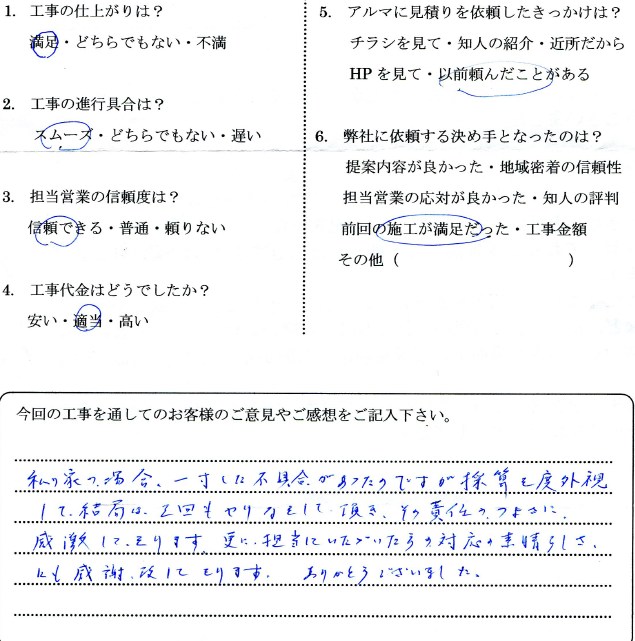 1. 工事の仕上がりは？
満足・どちらでもない・不満
2. 工事の進行具合は？
スムーズ・どちらでもない・遅い
3. 担当営業の信頼度は？
信頼できる・普通・頼りない
4. 工事代金はどうでしたか？
安い・適当・高い
5. アルマに見積りを依頼したきっかけは？
チラシを見て・知人の紹介・近所だから
HPを見て・以前頼んだことがある
6. 弊社に依頼する決め手となったのは？
提案内容が良かった・地域密着の信頼性
担当営業の応対が良かった・知人の評判
前回の施工が満足だった・工事金額
その他（　　　）
今回の工事を通してのお客様のご意見やご感想をご記入下さい。
私の家の場合、一寸した不具合があったのですが採算を度外視
して、結局は、2回もやり直をして頂き、その責任のつよさに、
感激しております。更に、担当していただいた方の対応の素晴らしさ、
にも感謝致しております。ありがとうございました。